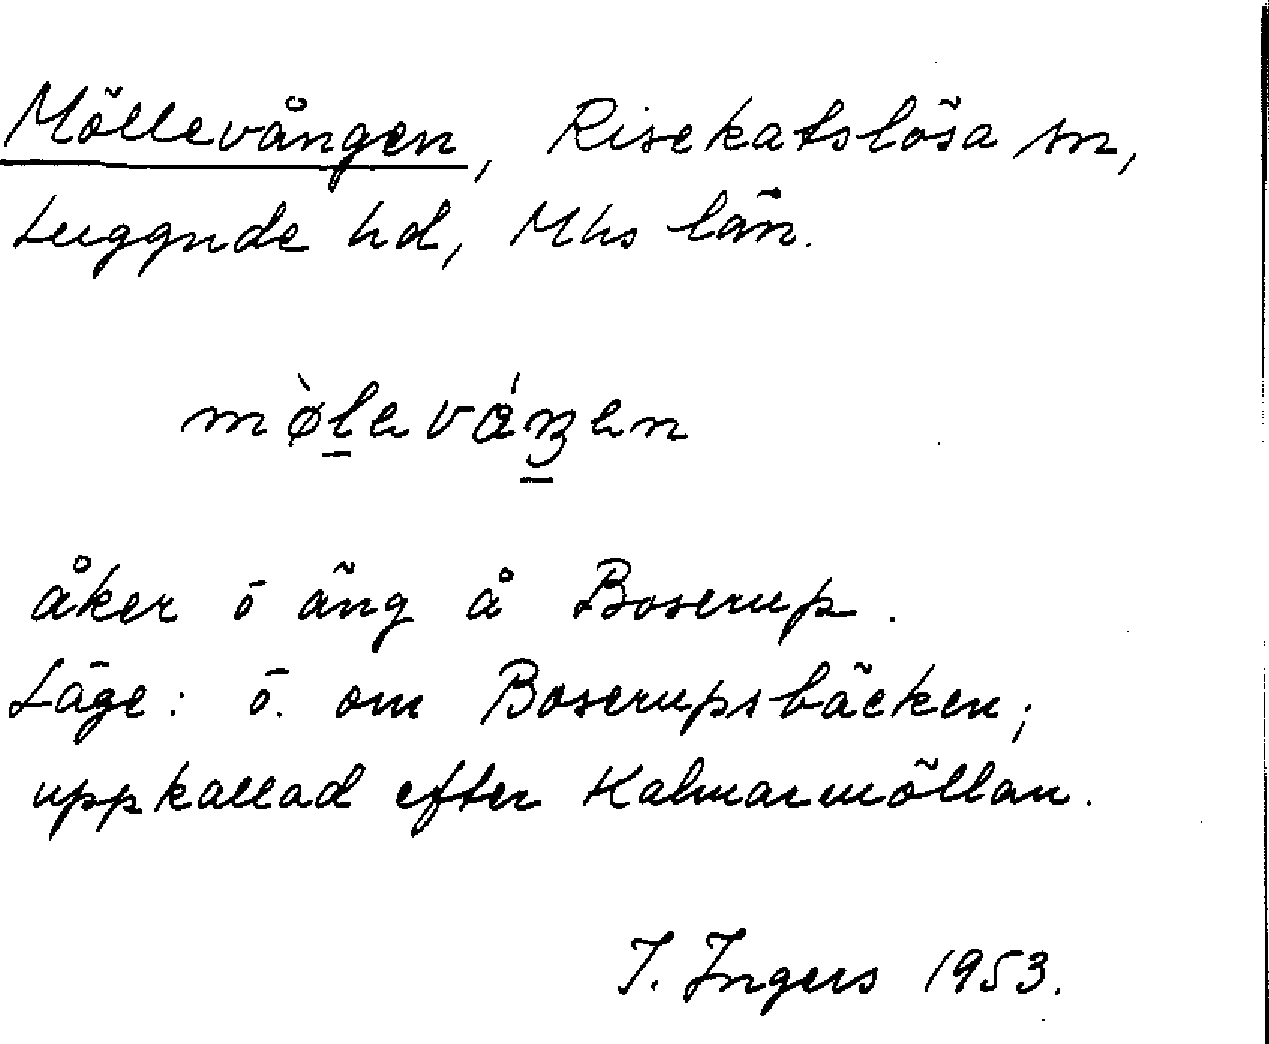 Möllevången, Risekatslösa sn,
Luggude hd, Mhs län.
mø̀leváŋen
åker o äng å Boserup.
Läge: ö. om Boserupsbäcken;
uppkallad efter Kalmarmöllan.
I. Ingers 1953.